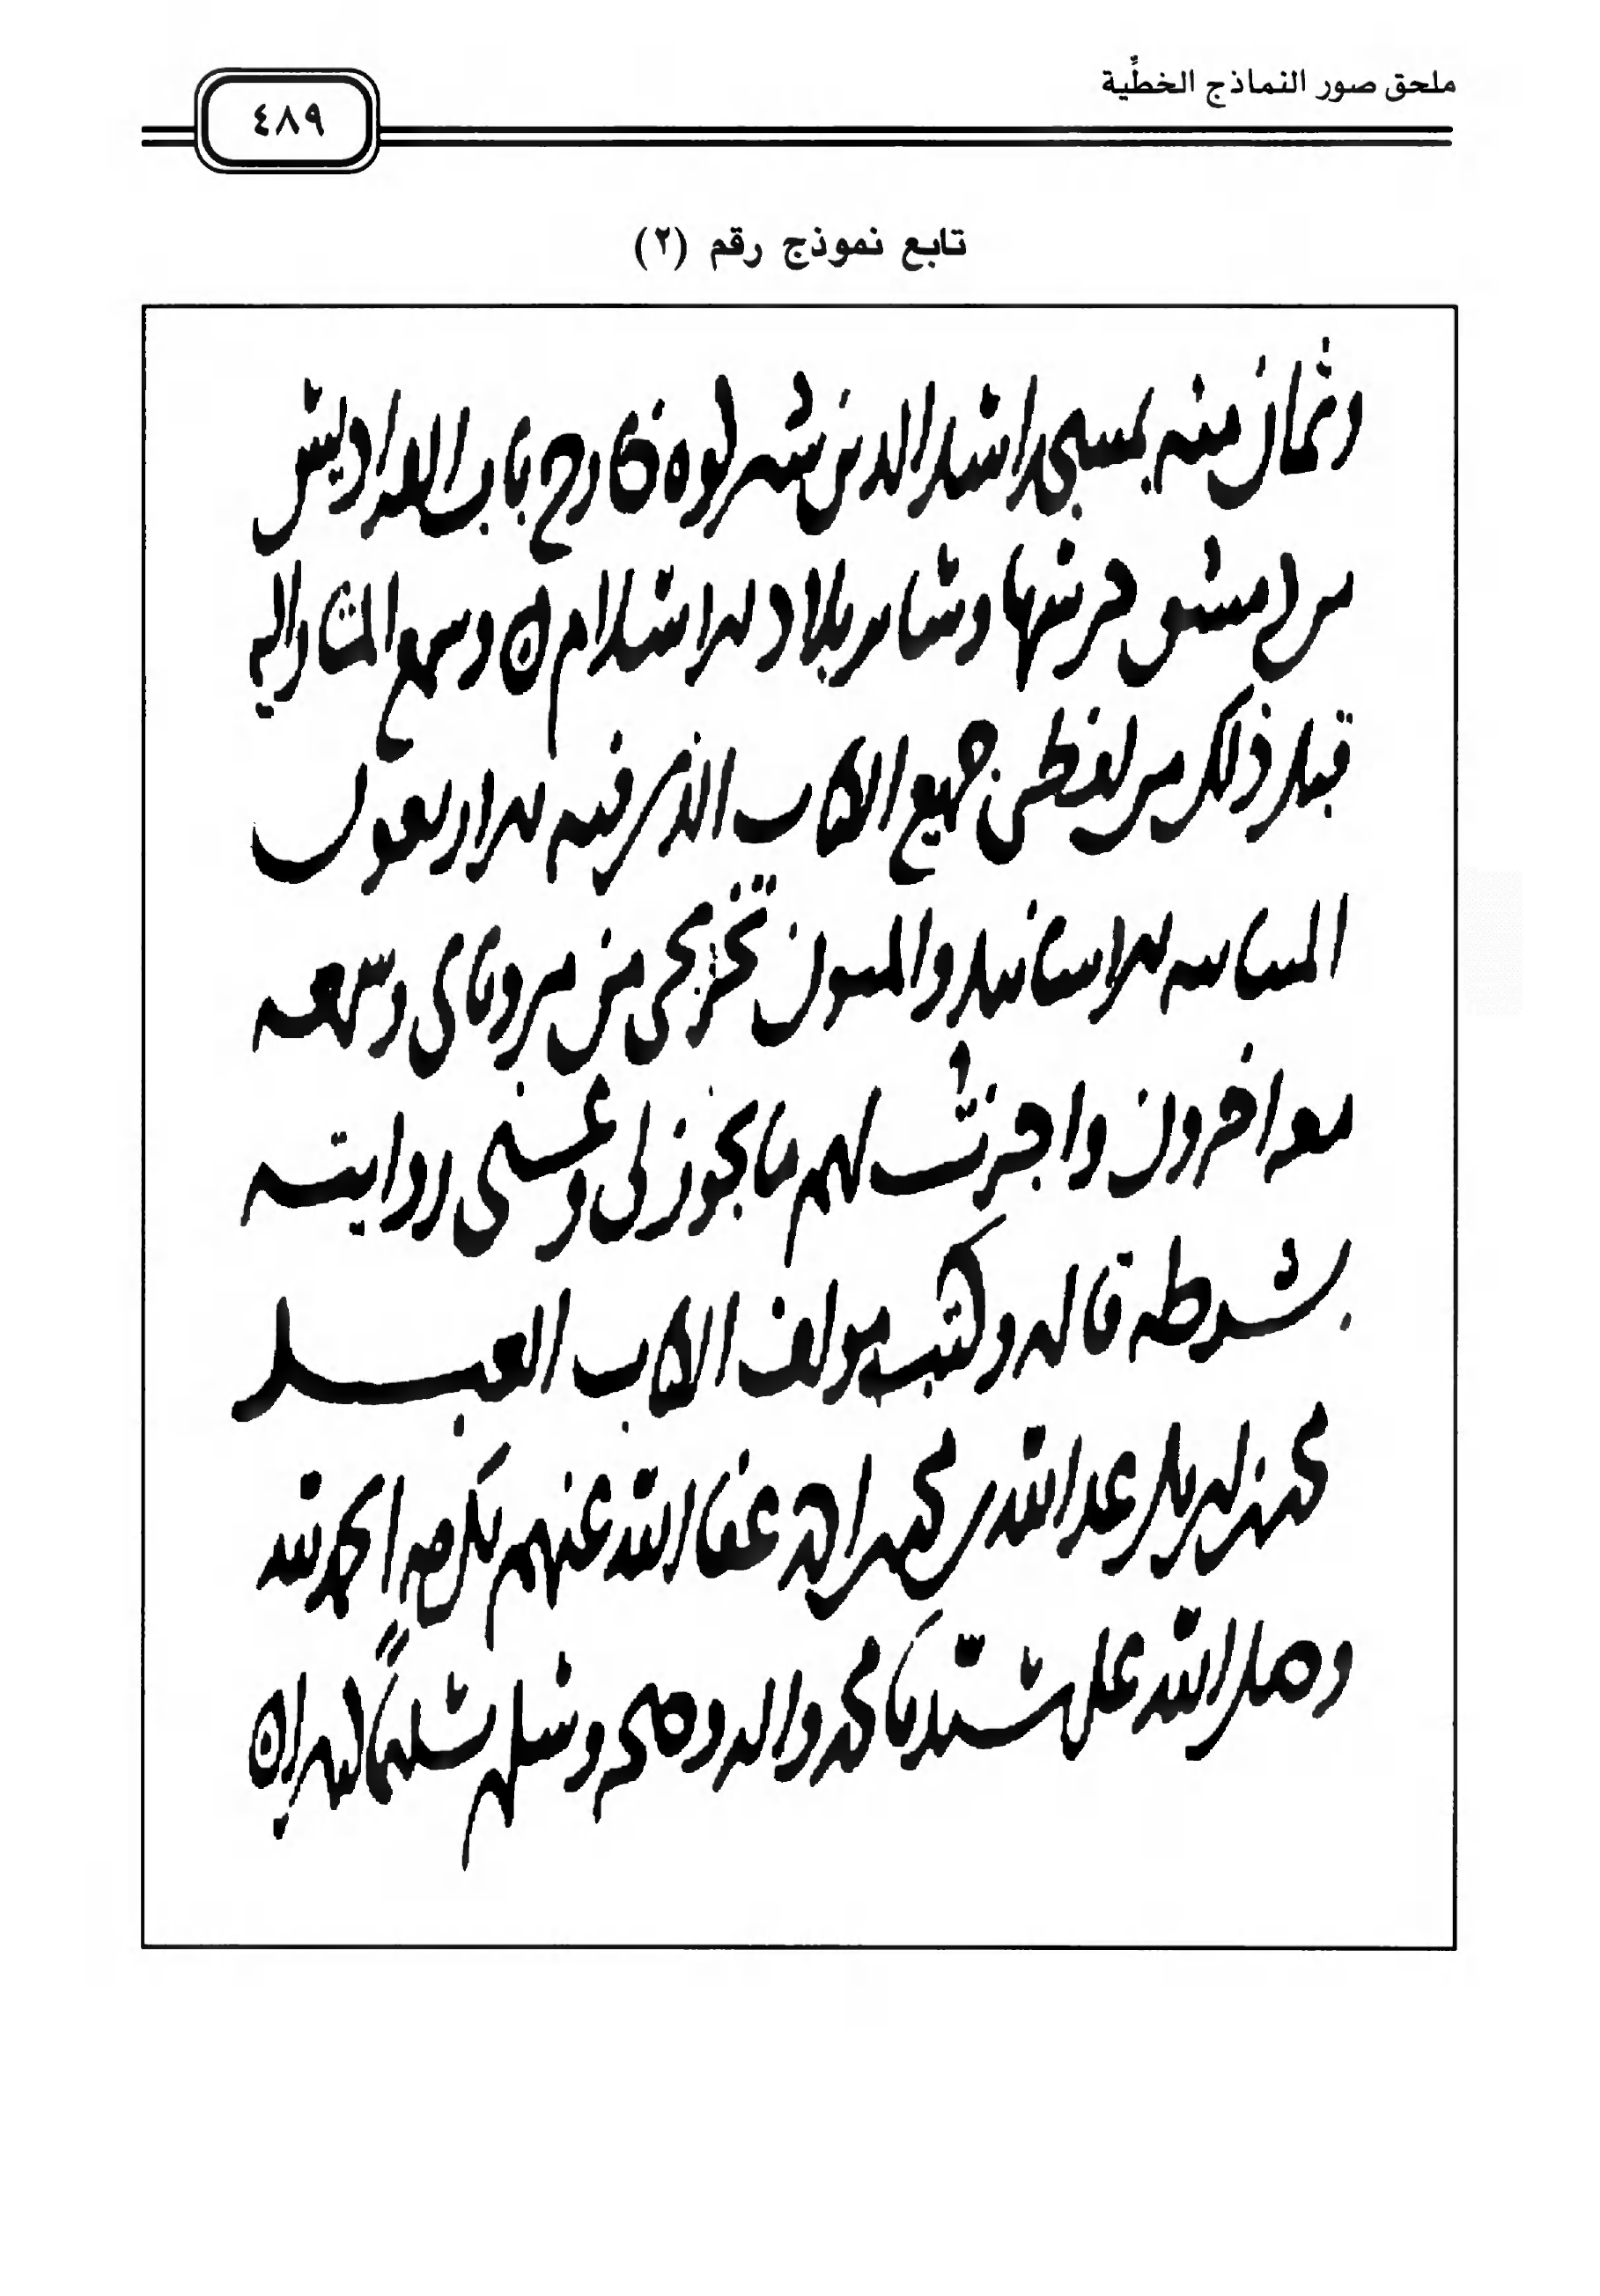 ملحق صور النماذج الخطِّية
٤٨٩
تابع نموذج رقم (٢)
وثمان منه بمسجد اسد الدين شيركوه خارج باب الفراديس
من دمشق حرسها وسائر بلاد الاسلام وسمع المشار اليه
قبل ذلك من لفظي جميع الكتاب الذي فيه الاربعون
المتباينه الاسانيد والمتون تخريجي من مروياتي وسمعه
معه اخرون واجزت لهم ما يجوز لي وعني روايته
بشرطه قاله وكتب مولف الكتاب العبد
محمد بن ابي بكر عبد الله بن محمد بن احمد عفا الله عنهم بكرمه الحمد لله
وصلى الله على سيدنا محمد واله وصحبه وسلم تسليما كثيرا